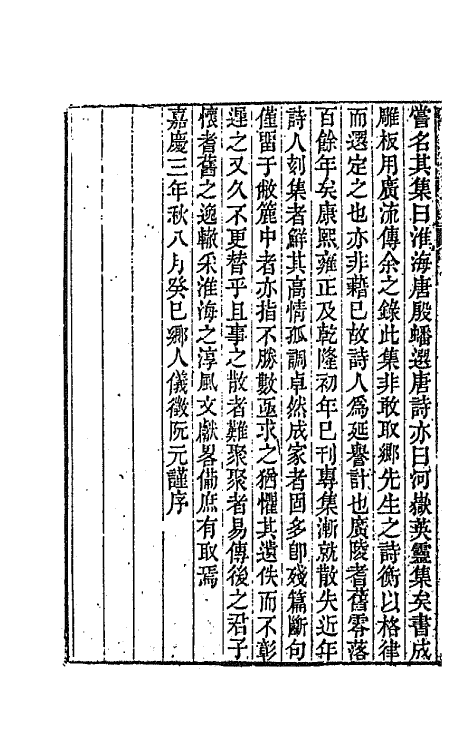 嘗名其集曰淮海唐殷蟠選唐詩亦曰河嶽英靈集矣書成
雕板用廣流傳余之錄此集非敢取鄉先生之詩衡以格律
而選定之也亦非藉已故詩人爲延譽計也廣陵耆舊零落
百餘年矣康熙雍正及乾隆初年已刊專集漸就散失近年
詩人刻集者鮮其高情孤調卓然成家者固多卽殘篇斷句
僅畱于敝簏中者亦指不勝數亟求之猶懼其遺佚而不彰
遲之又久不更替乎且事之散者難聚聚者易傳後之君子
懷耆舊之逸轍采淮海之淳風文獻畧備庶有取焉
嘉慶三年秋八月癸巳鄉人儀徵阮元謹序